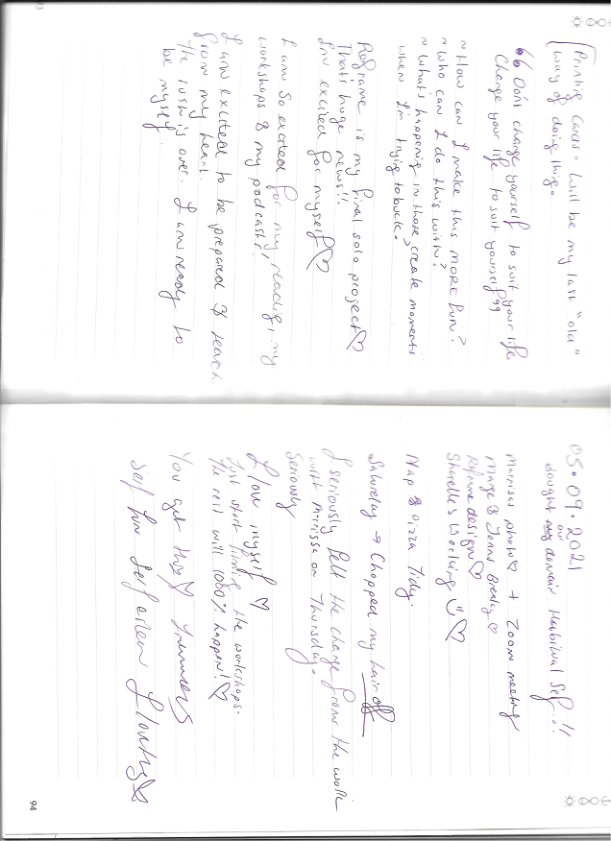 Printing Cards = Will be my last "old"
way of doing things.
"Don't change yourself to suit your life
Change your life to suit yourself"
~ How can I make this more fun?
~ Who can I do this with?
~ What's happening in those create moments
when I'm trying to
is my final solo project♡
That's huge news!!
I'm excited for myself♡
I am so excited for my reading, my
workshops & my podcast!
I am excited to be prepared & teach
from my heart.
The rush is over. I am ready to
be myself.
05.09.2021
Bought our domain Habitual Self..!!
photo + Zoom meeting
design♡
Working ☺♡
Nap & pizza Tidy.
Saturday → Chopped my hair off
I seriously felt the change from the work
with on Thursday.
Seriously
I love myself ♡
Just start the workshops.
The rest will 1000% happen!♡
You got this♡
Self love Self esteem
94